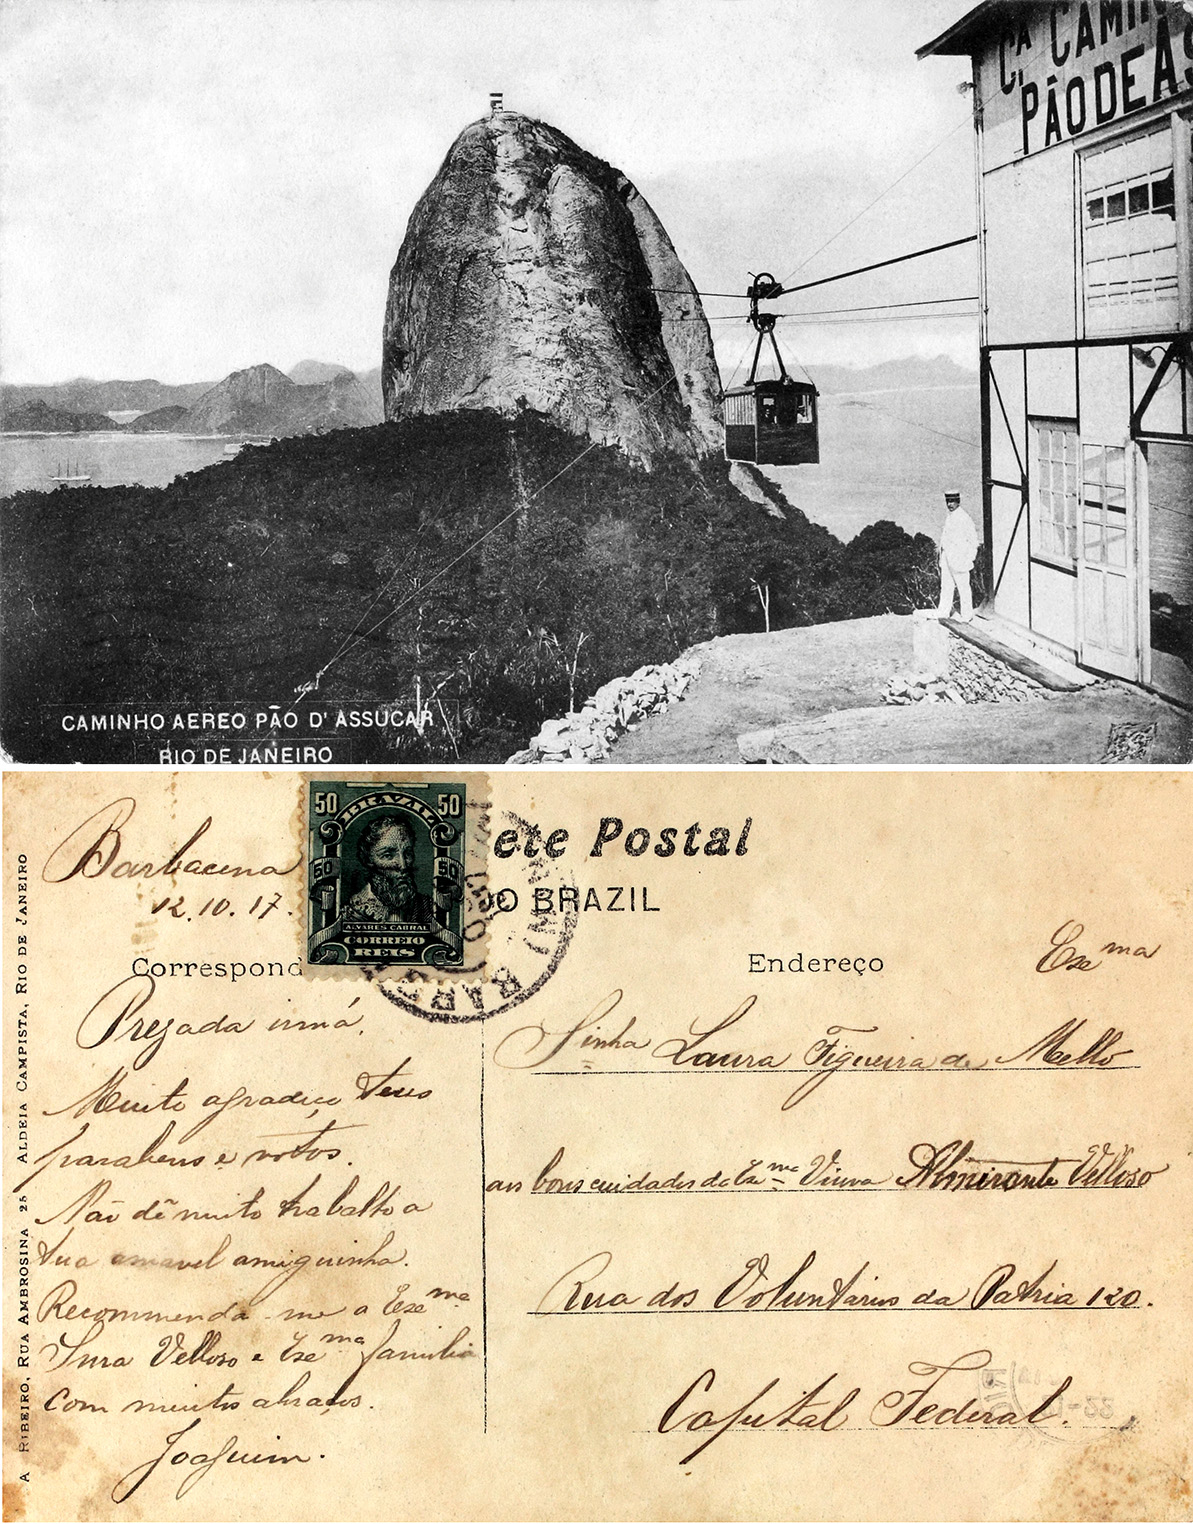 Cᴬ CAMIN
PÃO DE AS
CAMINHO AEREO PÃO D' ASSUCAR
RIO DE JANEIRO
A RIBEIRO, RUA AMBROSINA 25 ALDEIA CAMPISTA, RIO DE JANEIRO
Barbacena
12.10.17.
50 BRAZIL 50
50 50
ALVARES CABRAL
CORREIO
REIS
ete Postal
DO BRAZIL
Correspond
Endereço
Prezada irmá.
Muito agradeço teus
parabens e vótos.
Não dê muito trabalho a
tua amavel amiguinha.
Recommenda-me a Exeᵐᵃ
Snra Velloso e Exeᵐᵃ familia
com muitos abraços.
Joaquim.
Exeᵐᵃ
Sinha Laura Figueira de Mello
aos bons cuidados da Exᵐᵃ Viuva Almirante Velloso
Rua dos Voluntarios da Patria 120.
Capital Federal.